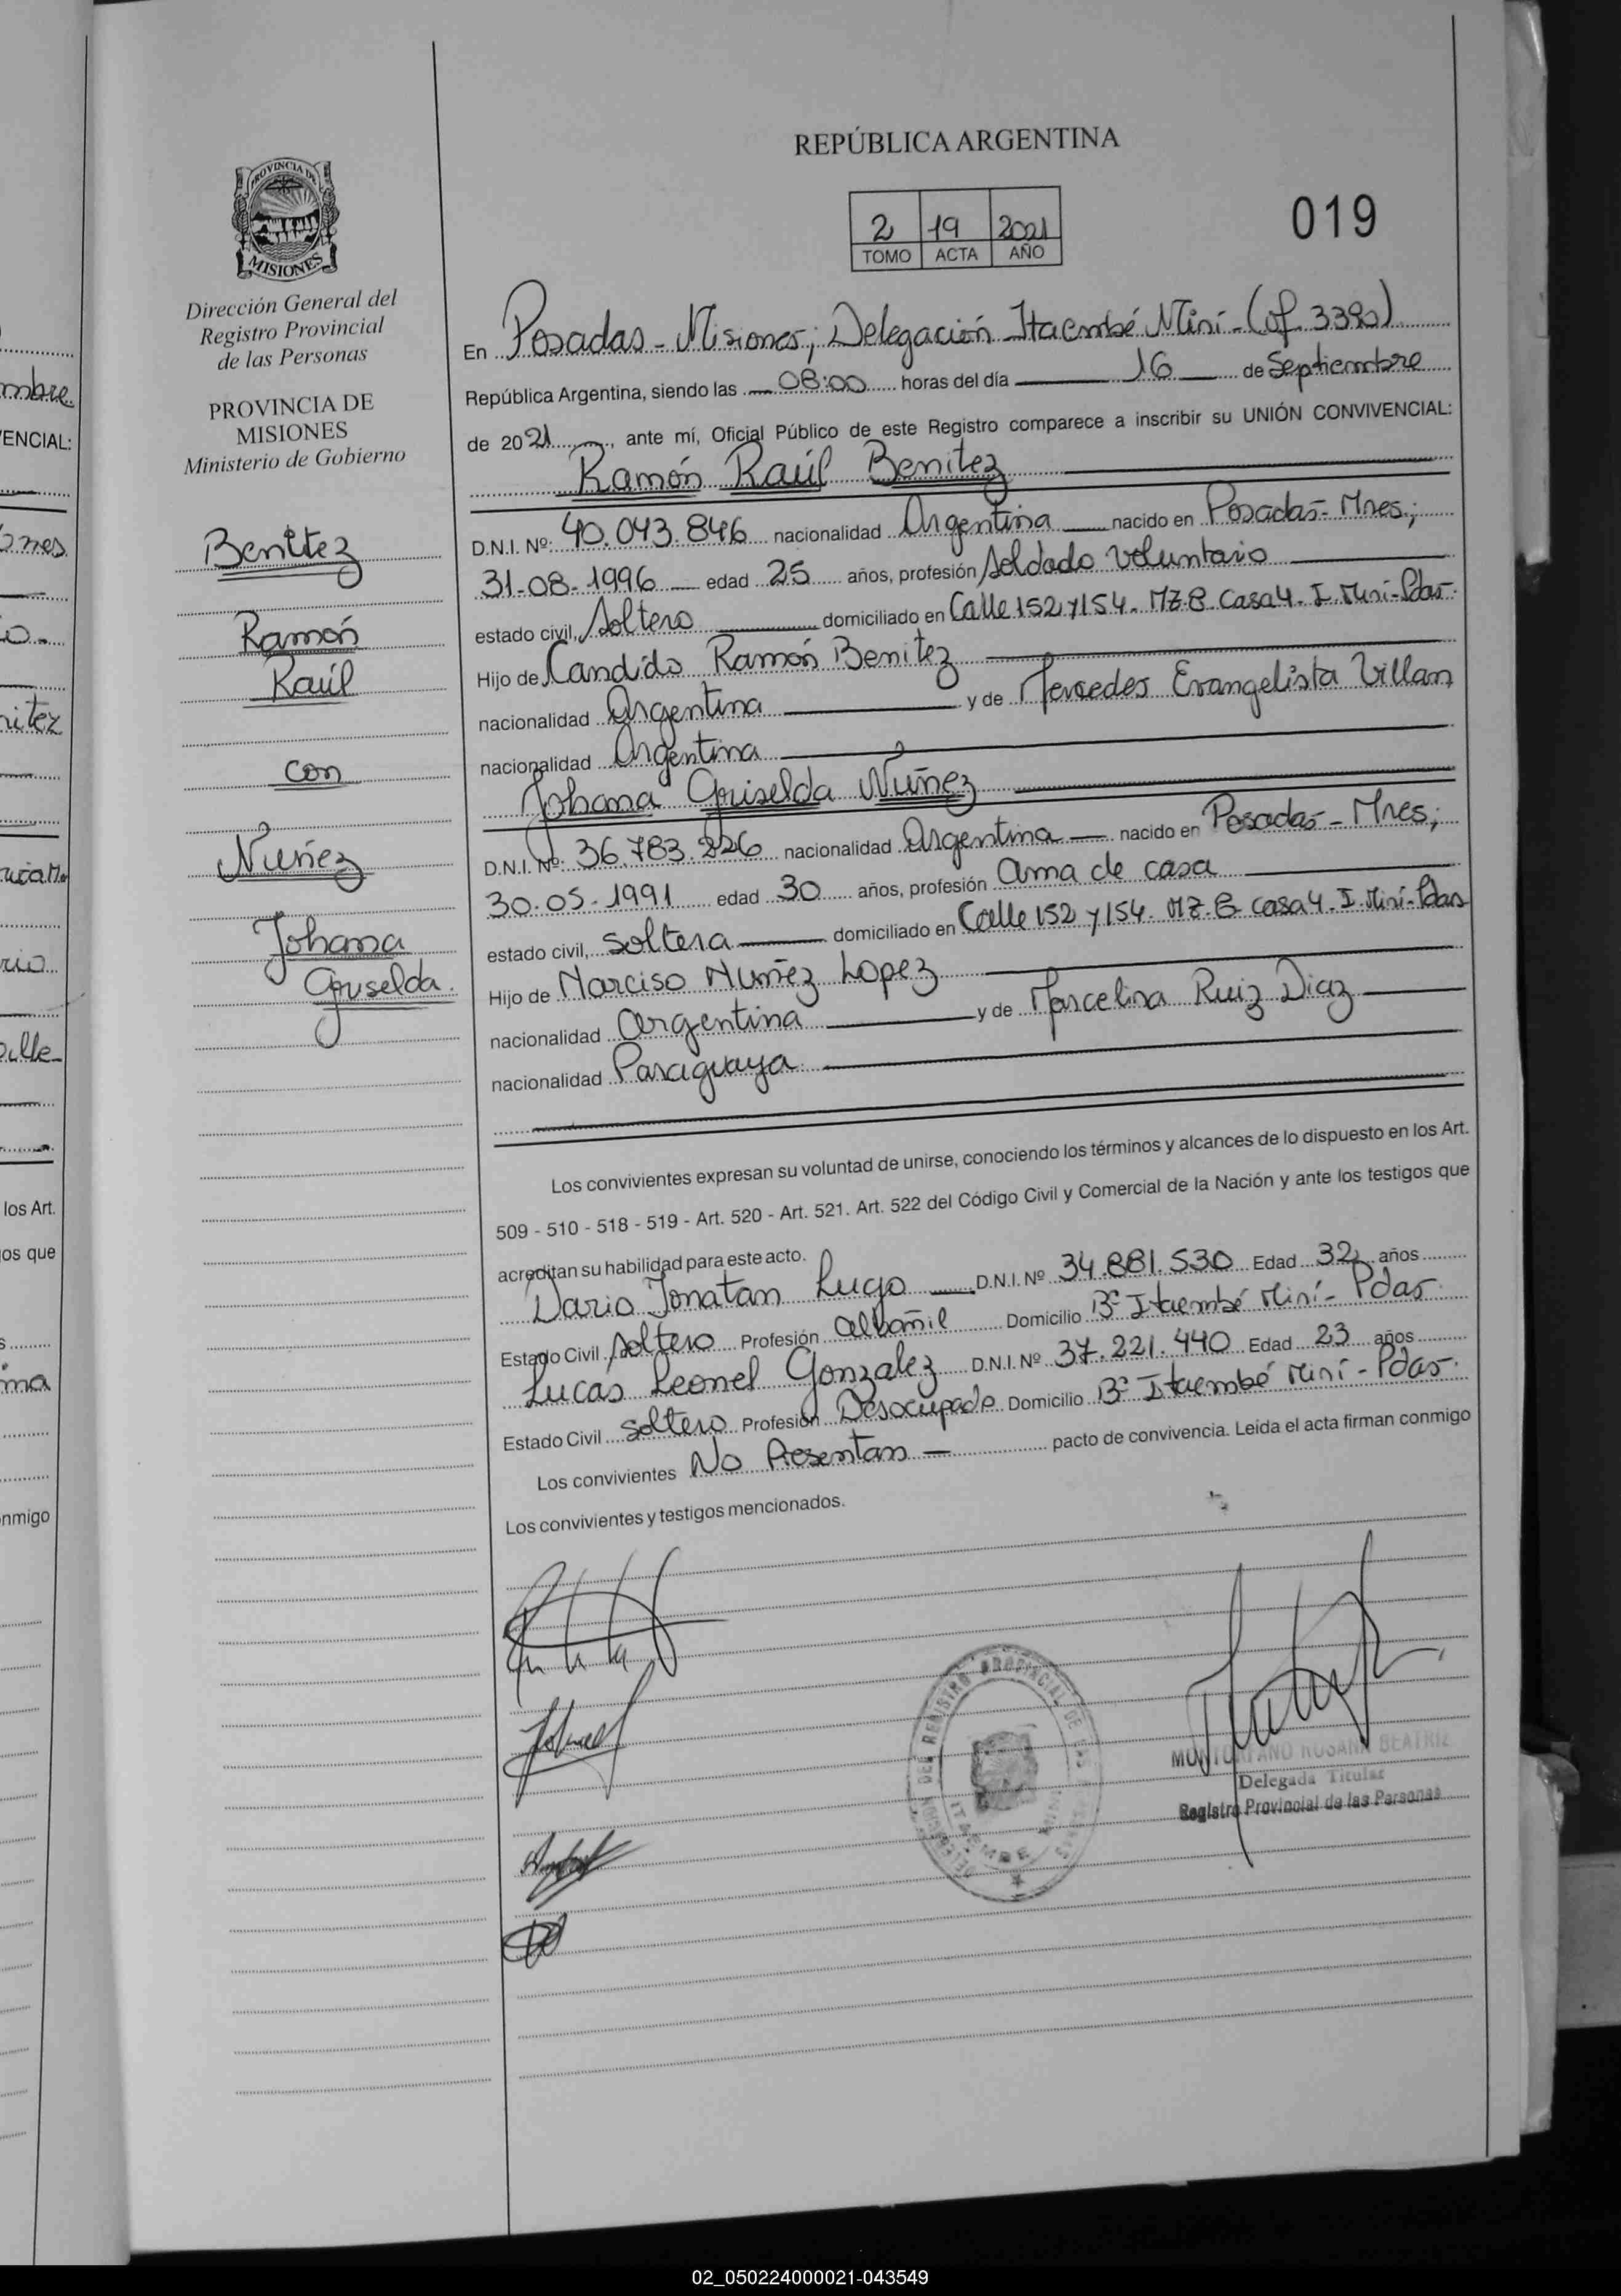 REPÚBLICA ARGENTINA
2 19 2021
TOMO ACTA AÑO
019
PROVINCIA DE
MISIONES
Dirección General del
Registro Provincial
de las Personas
PROVINCIA DE
MISIONES
Ministerio de Gobierno
Benitez
Ramón
Raúl
con
Nuñez
Johana
Griselda.
En Posadas - Misiones; Delegación Itaembé Miní - (of. 3380)
República Argentina, siendo las 08:00 horas del día 16 de Septiembre
de 2021, ante mí, Oficial Público de este Registro comparece a inscribir su UNIÓN CONVIVENCIAL:
Ramón Raúl Benitez
D.N.I. Nº: 40.043.846 nacionalidad Argentina nacido en Posadas - Mnes;
31-08-1996 edad 25 años, profesión Soldado Voluntario
estado civil, Soltero domiciliado en Calle 152 y 154. MZ.8. Casa 4. I. Miní-Pdas.
Hijo de Candido Ramón Benitez
nacionalidad Argentina y de Mercedes Evangelista Villan
nacionalidad Argentina
Johana Griselda Nuñez
D.N.I. Nº: 36.783.226 nacionalidad Argentina nacido en Posadas - Mnes;
30.05.1991 edad 30 años, profesión ama de casa
estado civil, soltera domiciliado en Calle 152 y 154. MZ.8. Casa 4. I. Miní-Pdas
Hijo de Narciso Nuñez Lopez
nacionalidad Argentina y de Marcelina Ruiz Diaz
nacionalidad Paraguaya
Los convivientes expresan su voluntad de unirse, conociendo los términos y alcances de lo dispuesto en los Art.
509 - 510 - 518 - 519 - Art. 520 - Art. 521. Art. 522 del Código Civil y Comercial de la Nación y ante los testigos que
acreditan su habilidad para este acto.
Dario Jonatan Lugo D.N.I. Nº 34.881.530 Edad 32 años
Estado Civil Soltero Profesión albañil Domicilio Bº Itaembé Miní - Pdas.
Lucas Leonel Gonzalez D.N.I. Nº 37.221.440 Edad 23 años
Estado Civil Soltero Profesión Desocupado Domicilio Bº Itaembé Miní - Pdas.
Los convivientes No Presentan pacto de convivencia. Leída el acta firman conmigo
Los convivientes y testigos mencionados.
MONTORFANO ROSANA BEATRIZ
Delegada Titular
Registro Provincial de las Personas
02_050224000021-043549